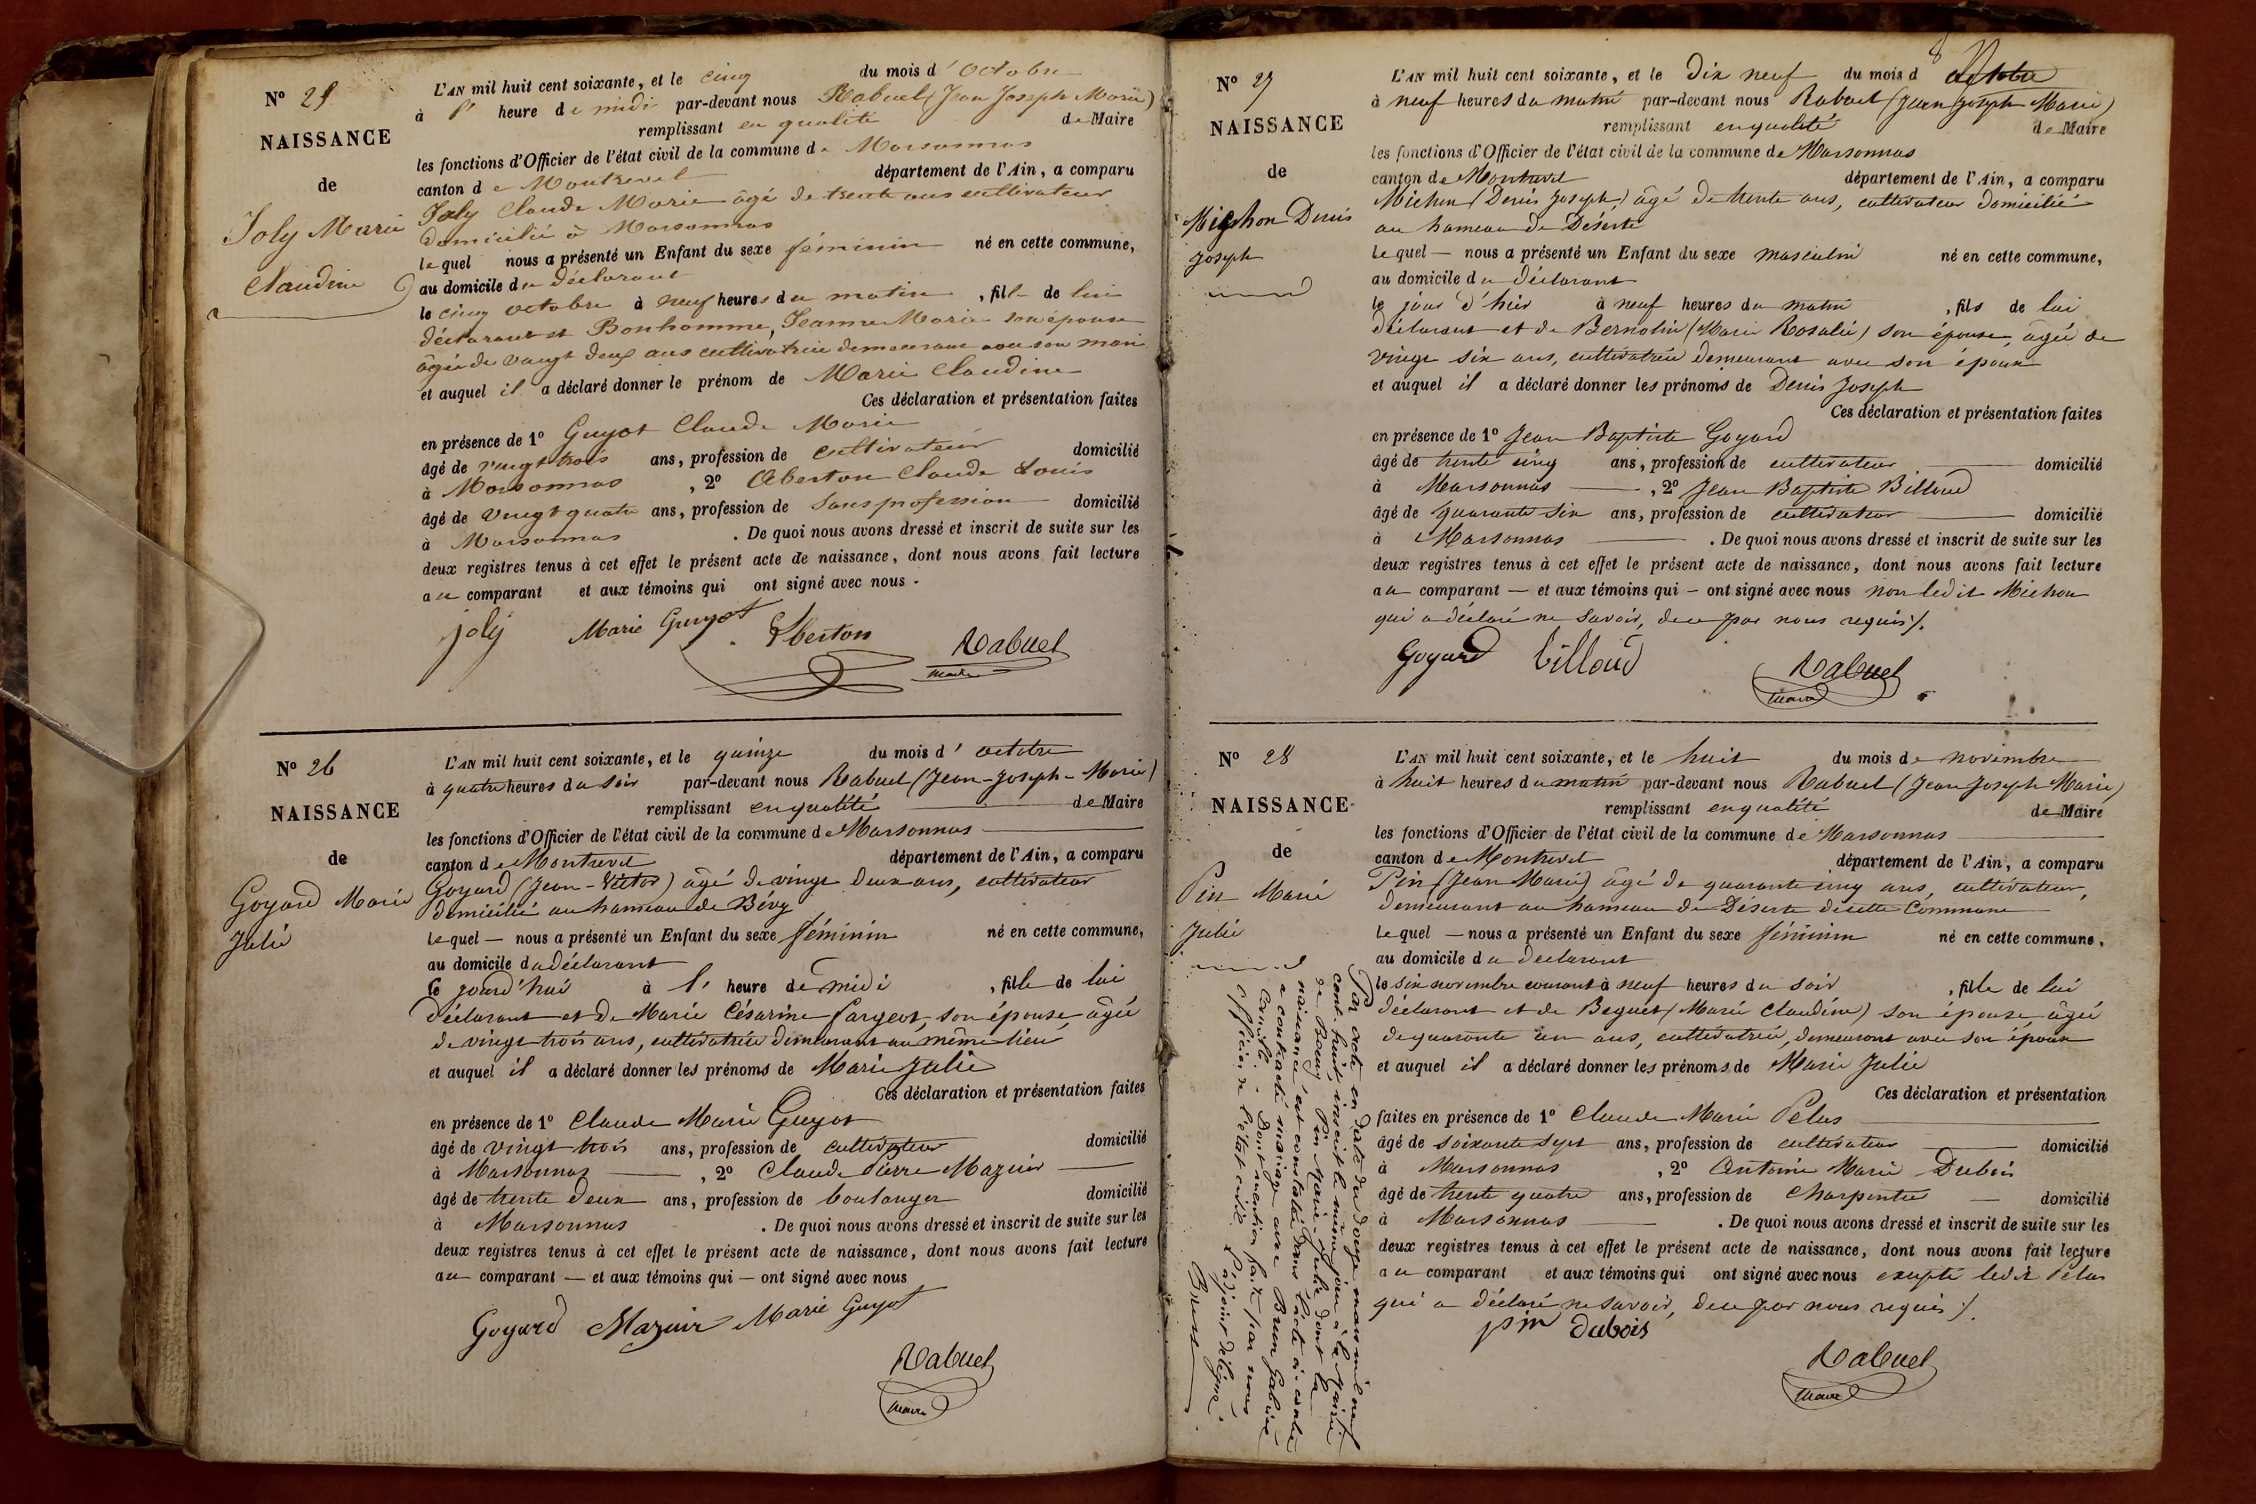 N° 25
NAISSANCE
de
Joly Marie
Claudine
L'AN mil huit cent soixante, et le cinq du mois d'octobre
à l' heure de midi par-devant nous Rabuel (Jean Joseph Marie)
remplissant en qualité de Maire
les fonctions d'Officier de l'état civil de la commune de Marsonnas
canton de Montrevel département de l'Ain, a comparu
Joly Claude Marie âgé de trente ans cultivateur
domicilié à Marsonnas
lequel nous a présenté un Enfant du sexe féminin né en cette commune,
au domicile du déclarant
le cinq octobre à neuf heures du matin, fille de lui
déclarant et Bonhomme, Jeanne Marie son épouse
âgée de vingt deux ans cultivatrice demeurant avec son mari
et auquel il a déclaré donner le prénom de Marie Claudine
Ces déclaration et présentation faites
en présence de 1° Guyot Claude Marie
âgé de vingt trois ans, profession de cultivateur domicilié
à Marsonnas, 2° Oberton Claude Louis
âgé de vingt quatre ans, profession de sans profession domicilié
à Marsonnas. De quoi nous avons dressé et inscrit de suite sur les
deux registres tenus à cet effet le présent acte de naissance, dont nous avons fait lecture
au comparant et aux témoins qui ont signé avec nous.
joly Marie Guyot Oberton Rabuel
maire
N° 26
NAISSANCE
de
Goyard Marie
Julie
L'AN mil huit cent soixante, et le quinze du mois d'octobre
à quatre heures du soir par-devant nous Rabuel (Jean-Joseph-Marie)
remplissant en qualité de Maire
les fonctions d'Officier de l'état civil de la commune de Marsonnas
canton de Montrevel département de l'Ain, a comparu
Goyard (Jean-Victor) âgé de vingt deux ans, cultivateur
domicilié au hameau de Bévy
lequel — nous a présenté un Enfant du sexe féminin né en cette commune,
au domicile du déclarant
ce jourd'hui à l' heure de midi, fille de lui
déclarant et de Marie Césarine Fargeot, son épouse, âgée
de vingt trois ans, cultivatrice demeurant au même lieu
et auquel il a déclaré donner les prénoms de Marie Julie
Ces déclaration et présentation faites
en présence de 1° Claude Marie Guyot
âgé de vingt trois ans, profession de cultivateur domicilié
à Marsonnas, 2° Claude Pierre Mazuir
âgé de trente deux ans, profession de boulanger domicilié
à Marsonnas. De quoi nous avons dressé et inscrit de suite sur les
deux registres tenus à cet effet le présent acte de naissance, dont nous avons fait lecture
au comparant — et aux témoins qui — ont signé avec nous
Goyard Mazuir Marie Guyot
Rabuel
maire
8
N° 27
NAISSANCE
de
Michon Denis
Joseph
L'AN mil huit cent soixante, et le dix neuf du mois d'octobre
à neuf heures du matin par-devant nous Rabuel (Jean Joseph Marie)
remplissant en qualité de Maire
les fonctions d'Officier de l'état civil de la commune de Marsonnas
canton de Montrevel département de l'Ain, a comparu
Michon (Denis Joseph) âgé de trente ans, cultivateur domicilié
au hameau de Déserte
lequel — nous a présenté un Enfant du sexe masculin né en cette commune,
au domicile du déclarant
le jour d'hier à neuf heures du matin, fils de lui
déclarant et de Bernolin (Marie Rosalie) son épouse, âgée de
vingt six ans, cultivatrice demeurant avec son époux
et auquel il a déclaré donner les prénoms de Denis Joseph
Ces déclaration et présentation faites
en présence de 1° Jean Baptiste Goyard
âgé de trente cinq ans, profession de cultivateur domicilié
à Marsonnas, 2° Jean Baptiste Billoud
âgé de quarante six ans, profession de cultivateur domicilié
à Marsonnas. De quoi nous avons dressé et inscrit de suite sur les
deux registres tenus à cet effet le présent acte de naissance, dont nous avons fait lecture
au comparant — et aux témoins qui — ont signé avec nous non ledit Michon
qui a déclaré ne savoir, de ce par nous requis /.
Goyard billoud Rabuel
maire
N° 28
NAISSANCE
de
Pin Marie
Julie
L'AN mil huit cent soixante, et le huit du mois de novembre
à huit heures du matin par-devant nous Rabuel (Jean Joseph Marie)
remplissant en qualité de Maire
les fonctions d'Officier de l'état civil de la commune de Marsonnas
canton de Montrevel département de l'Ain, a comparu
Pin (Jean Marie) âgé de quarante cinq ans, cultivateur,
demeurant au hameau de Déserte de cette Commune
lequel — nous a présenté un Enfant du sexe féminin né en cette commune,
au domicile du déclarant
le six novembre courant à neuf heures du soir, fille de lui
déclarant et de Beguet (Marie Claudine) son épouse âgée
de quarante un ans, cultivatrice, demeurant avec son époux
et auquel il a déclaré donner les prénoms de Marie Julie
Ces déclaration et présentation
faites en présence de 1° Claude Marie Pelus
âgé de soixante sept ans, profession de cultivateur domicilié
à Marsonnas, 2° Antoine Marie Dubois
âgé de trente quatre ans, profession de Charpentier — domicilié
à Marsonnas. De quoi nous avons dressé et inscrit de suite sur les
deux registres tenus à cet effet le présent acte de naissance, dont nous avons fait lecture
au comparant et aux témoins qui ont signé avec nous excepté ledit Pelus
qui a déclaré ne savoir, de ce par nous requis /.
pin dubois
Rabuel
maire
Par acte en date du douze mars mil neuf
cent huit, inscrit le même jour à la mairie
de Bourg, Pin Marie Julie dont la
naissance est constatée dans l'acte ci-contre
a contracté mariage avec Brun Gabriel
Camille. Dont mention faite par nous
officier de l'état civil
L'adjoint délégué,